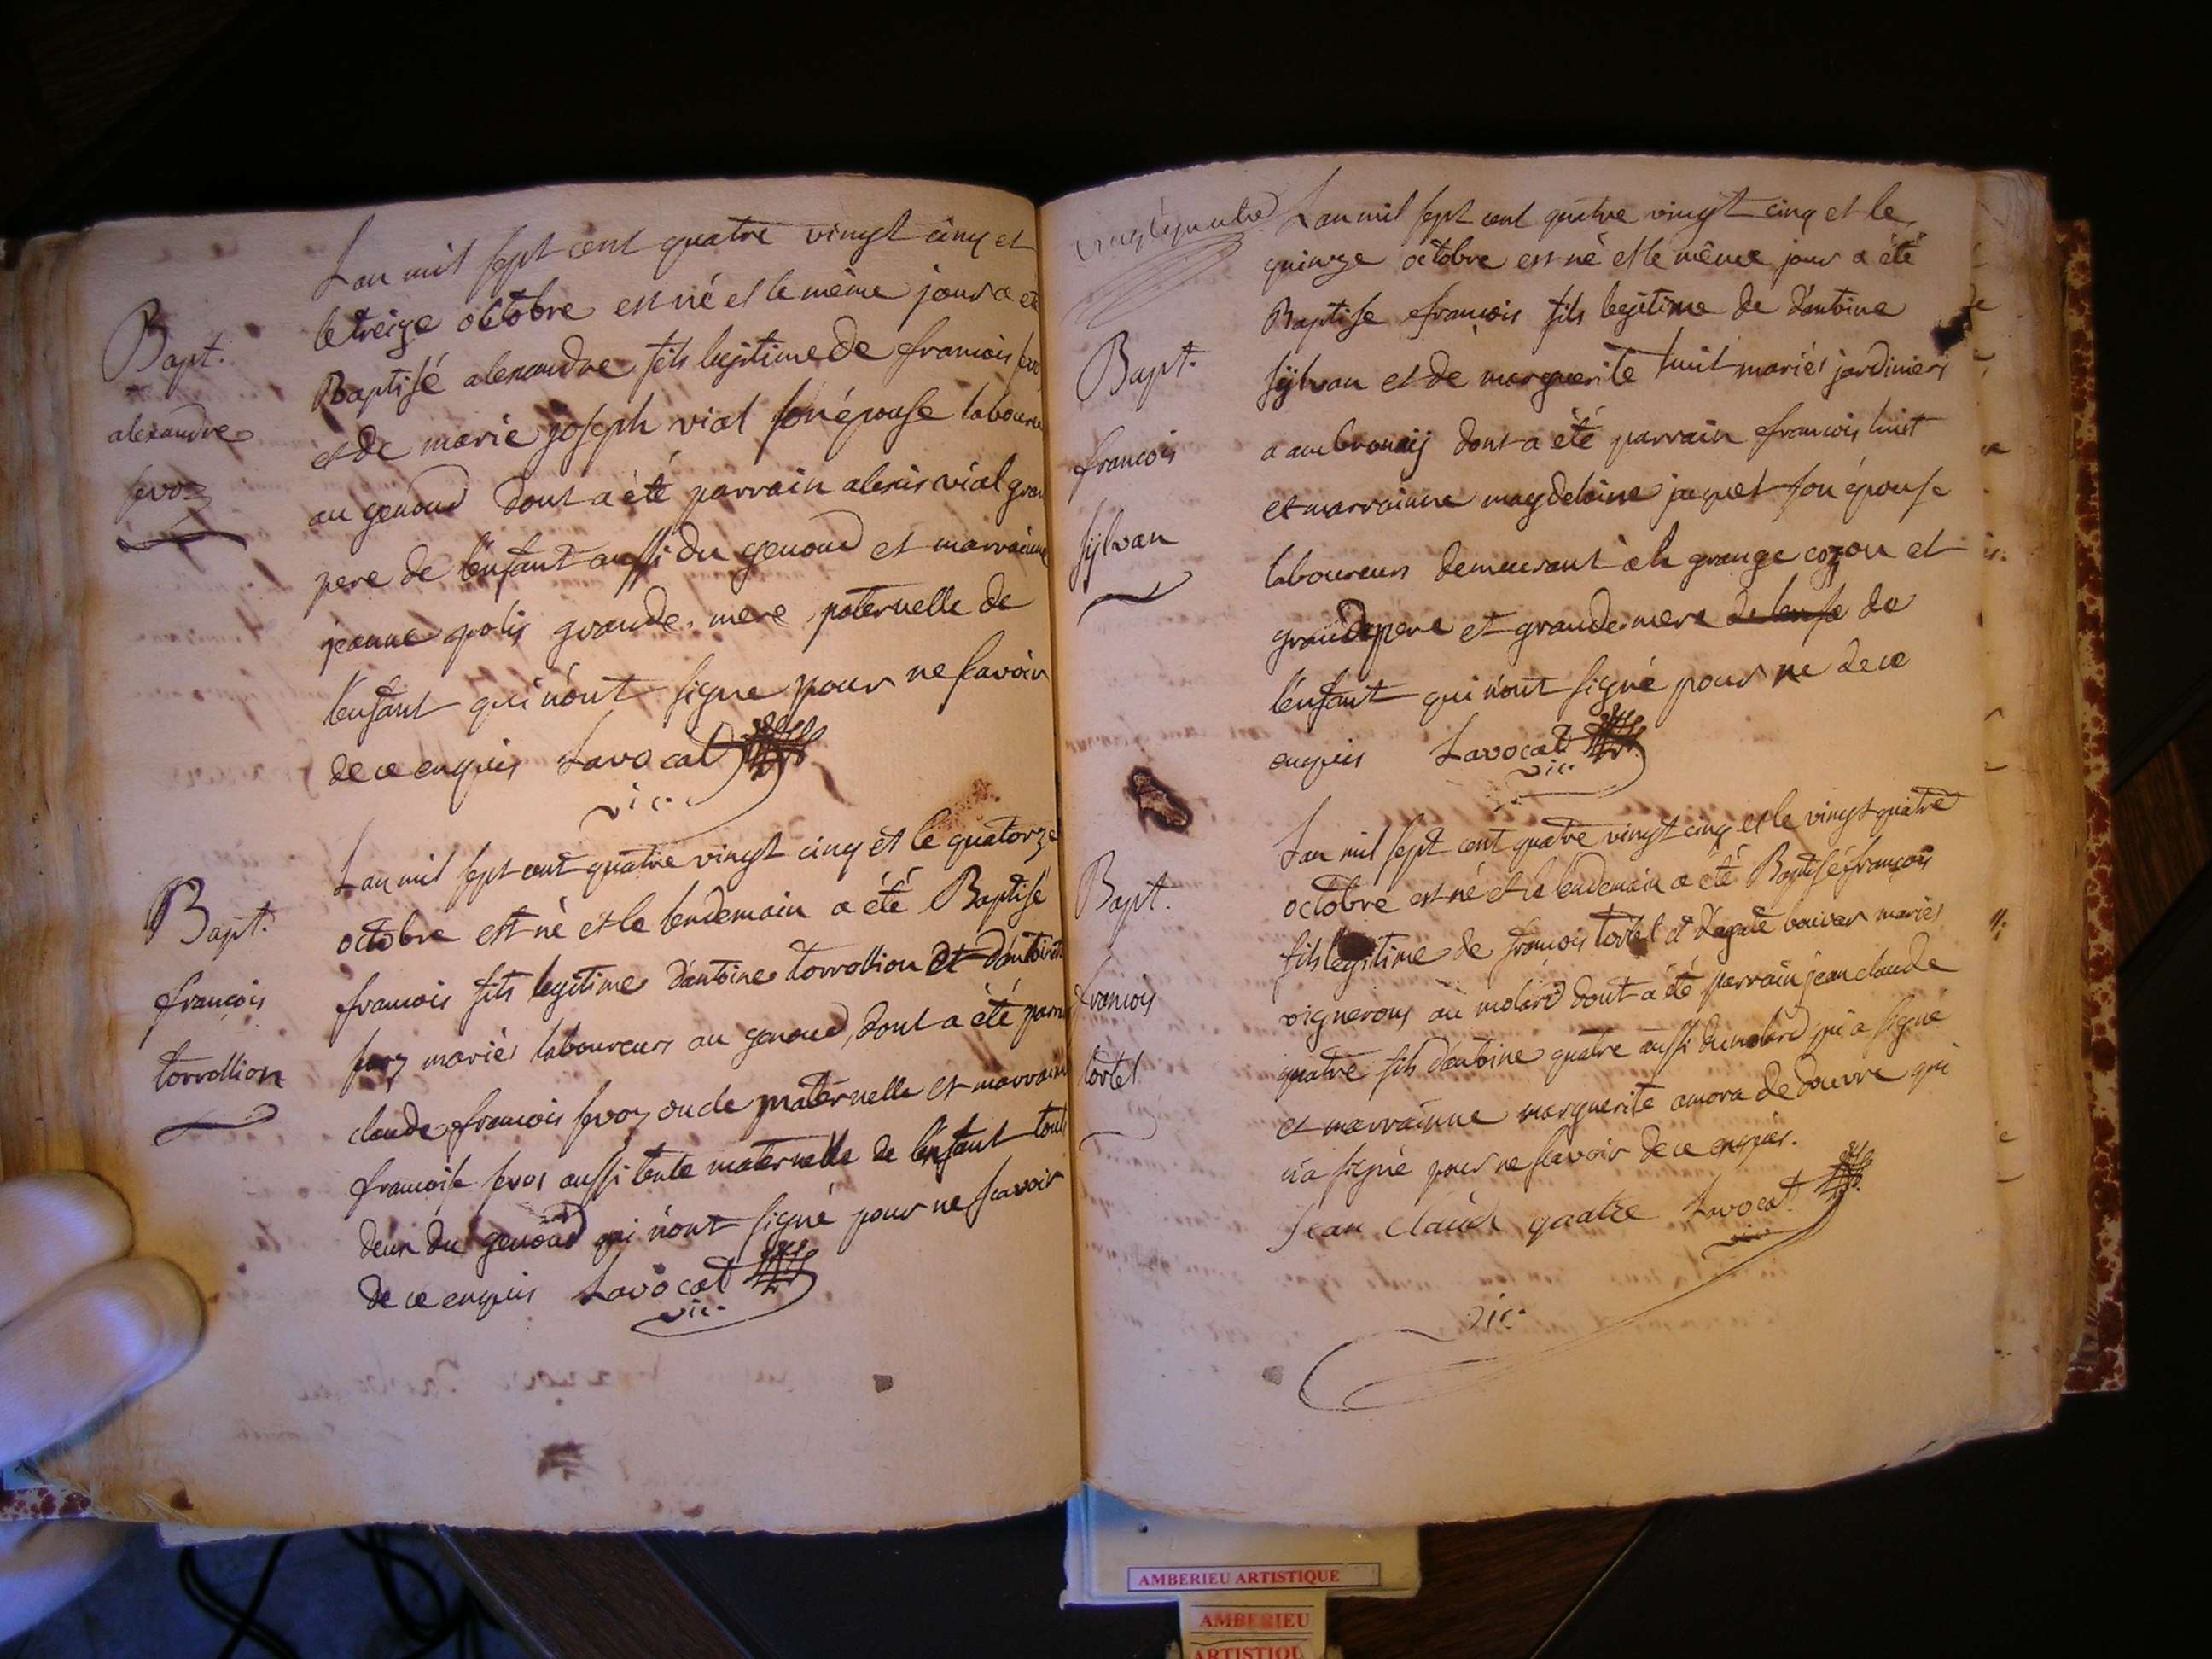 Lan mil sept cent quatre vingt cinq et
le treize octobre est né et le même jour a eté
Baptisé alexandre fils legitime de francois
et de marie joseph vial son épouse
au genoud dont a été parrain alexis vial
pere de l'enfant aussi du genoud et marrainne
jeanne grande mere paternelle de
l'enfant qui n'ont signe pour ne scavoir
de ce enquis Lavocat
vic.
Bapt.
alexandre
fevoz
Lan mil sept cent quatre vingt cinq et le quatorze
octobre est né et le lendemain a été Baptisé
francois fils legitime d'antoine torrollion et
mariés laboureurs au genoud, dont a été
claude francois fevoz oncle maternelle et marrainne
francoise fevoz aussi tente maternelle de l'enfant tout
deux du genoud qui n'ont signé pour ne scavoir
de ce enquis Lavocat
vic.
Bapt.
francois
torrollion
vingt quatre
Lan mil sept cent quatre vingt cinq et le
quinze octobre est né et le même jour a été
Baptise francois fils legitime de d'antoine
sÿlvan et de marguerite huit mariés jardiniers
a ambronaij dont a été parrain francois huit
et marrainne magdelaine jaquet son épouse
laboureurs demeurant à la grange cozon et
grandpere et grande mere de
l'enfant qui n'ont signé pour ne de ce
enquis Lavocat
vic.
Bapt.
francois
sÿlvan
Lan mil sept cent quatre vingt cinq et le vingt quatre
octobre est né et le lendemain a été Baptisé francois
fils legitime de francois tortel et mariés
vignerons au molard dont a été parrain jean claude
quatre fils d'antoine quatre aussi du molard qui a signe
et marrainne marguerite amora de douvre qui
n'a signé pour ne scavoir de ce enquis.
Jean Claude quatre Lavocat
vic.
Bapt.
francois
tortel
AMBERIEU ARTISTIQUE
AMBERIEU
ARTISTIQU